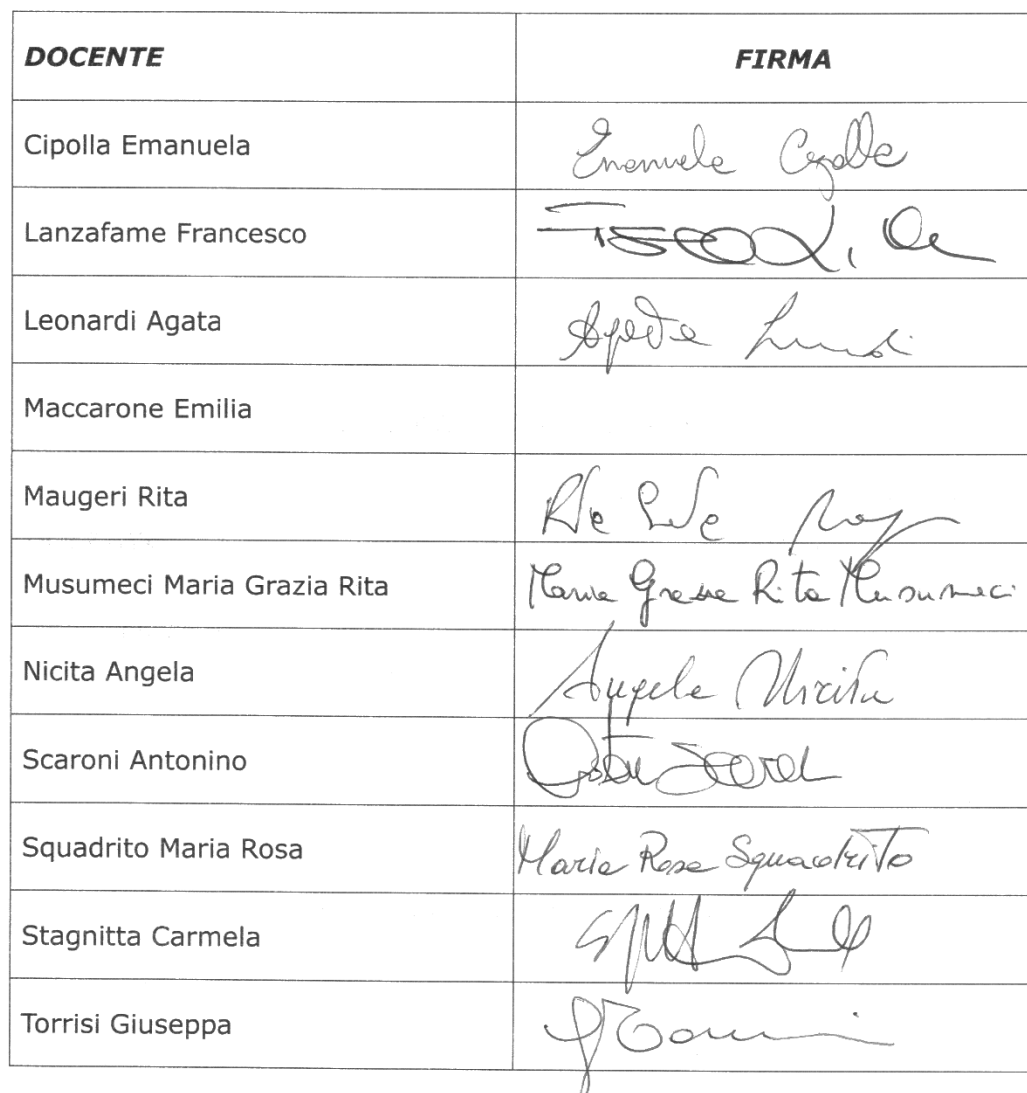 DOCENTE FIRMA
Cipolla Emanuela Emanuela Cipolla
Lanzafame Francesco
Leonardi Agata Agata
Maccarone Emilia
Maugeri Rita
Musumeci Maria Grazia Rita Maria Grazia Rita Musumeci
Nicita Angela Angela Nicita
Scaroni Antonino
Squadrito Maria Rosa Maria Rosa Squadrito
Stagnitta Carmela
Torrisi Giuseppa